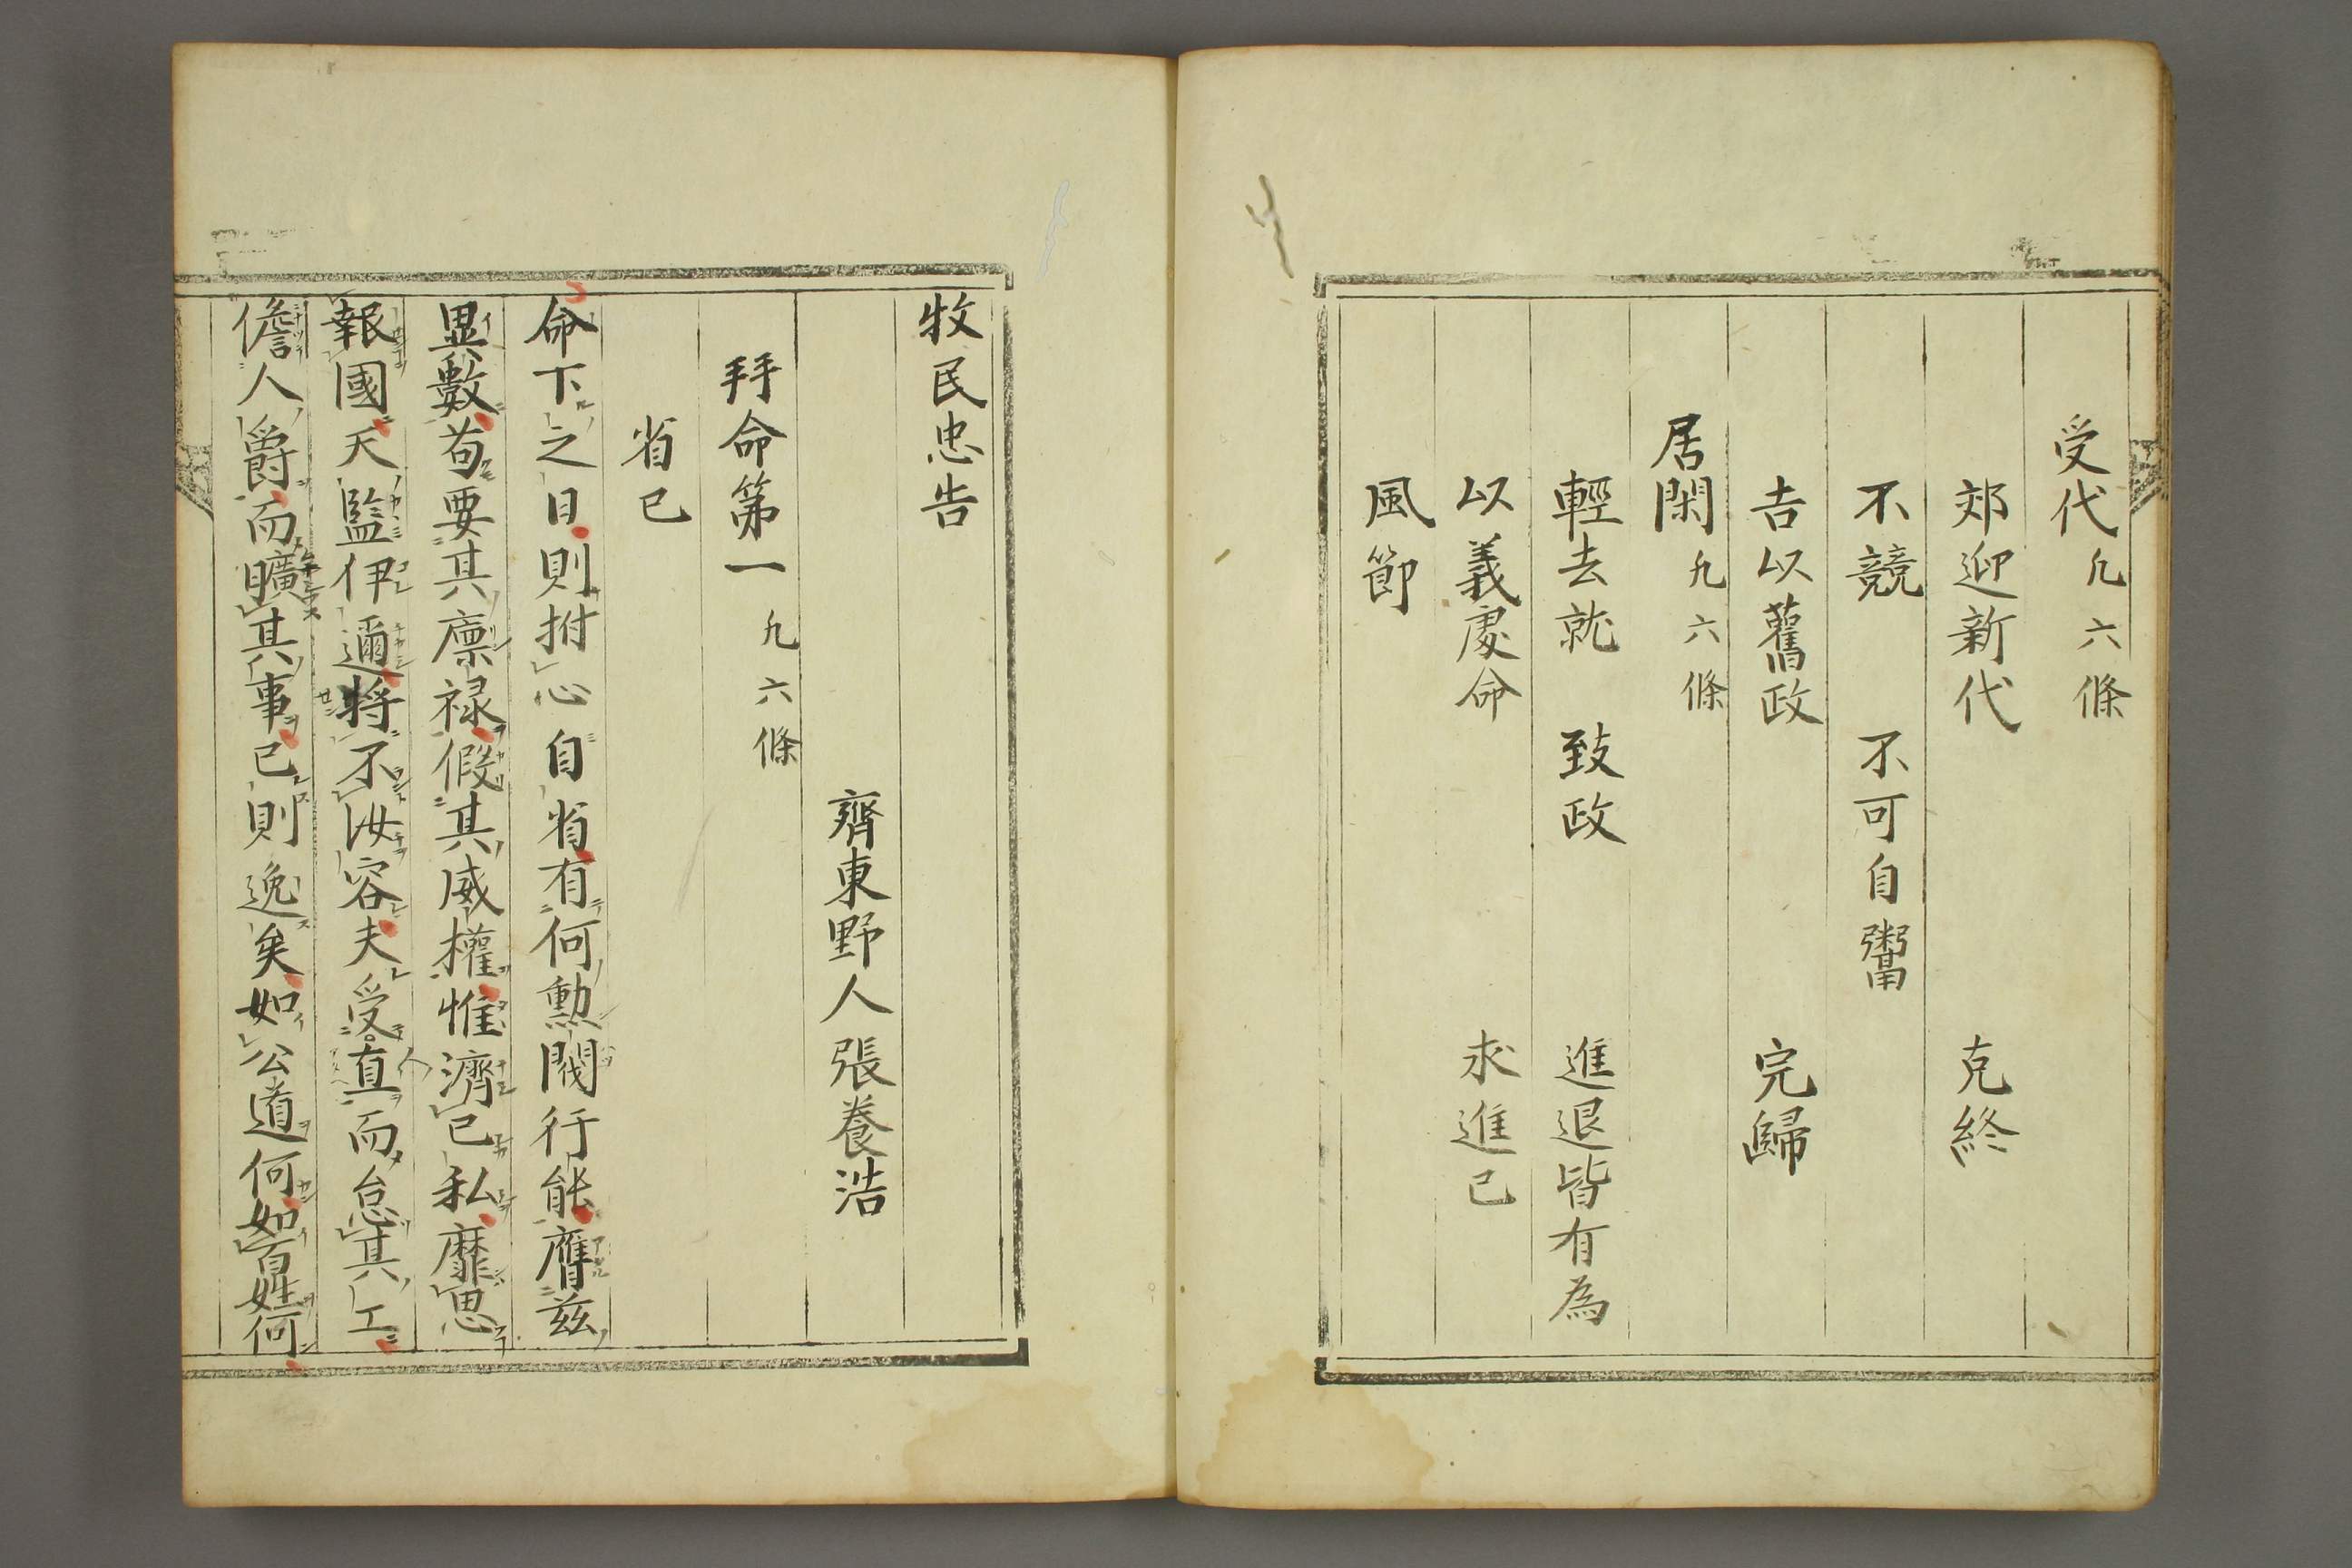 受代 凢六條
郊迎新代 克終
不競 不可自鬻
告以舊政 完歸
居閑 凢六條
輕去就 致政 進退皆有為
以義處命 求進已
風節
牧民忠告
齊東野人張養浩
拜命第一 凢六條
省已
命下之日則拊心自省有何勳閥行能膺茲
異數苟要其廪禄假其威權惟濟已私靡思
報國天監伊邇將不汝容夫受人直而怠其工
儋人爵而曠其事已則逸矣如公道何如百姓何